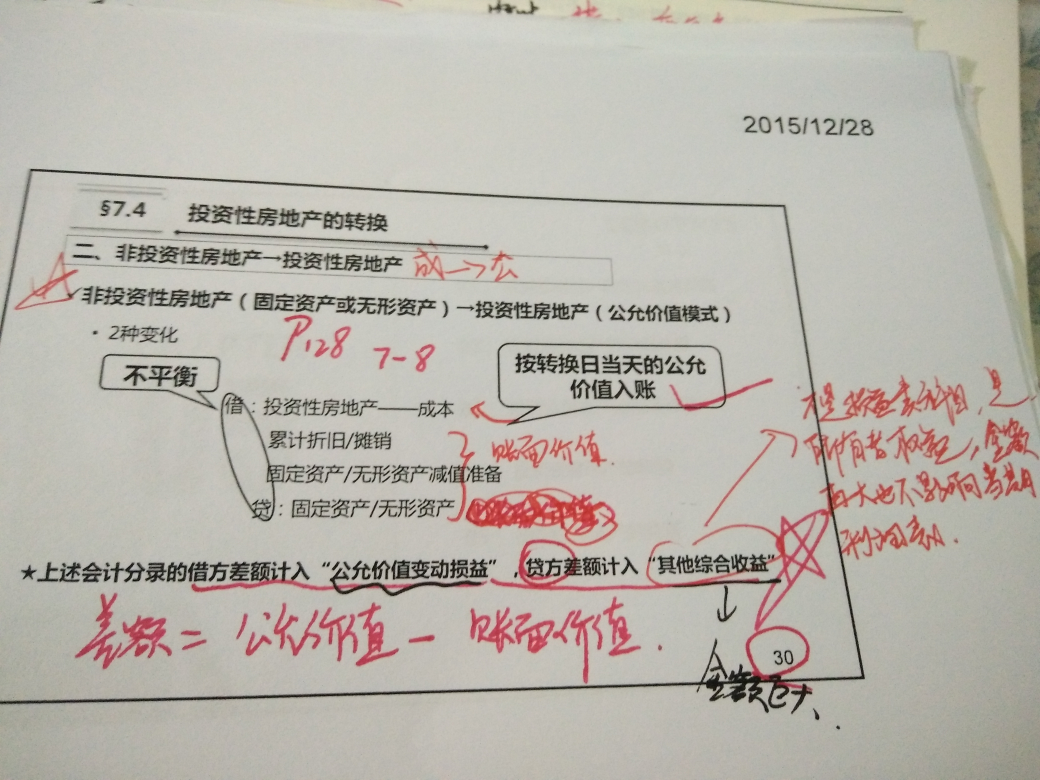 2015/12/28
§7.4 投资性房地产的转换
二、非投资性房地产→投资性房地产 成→公
✓非投资性房地产（固定资产或无形资产）→投资性房地产（公允价值模式）
• 2种变化
P128 7-8
不平衡
按转换日当天的公允
价值入账
借：投资性房地产——成本
累计折旧/摊销
账面价值
固定资产/无形资产减值准备
贷：固定资产/无形资产
是
所有者权益，金额
再大也不影响当期
利润表.
★上述会计分录的借方差额计入“公允价值变动损益”，贷方差额计入“其他综合收益”
差额 = 公允价值 — 账面价值.
30
金额巨大、